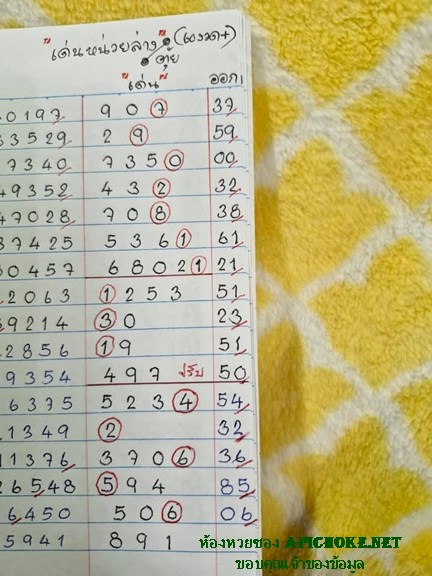 "เด่นหน่วยล่าง" (60งวด+)
คุ้ย
"เด่น" ออก
0197 907 37
3529 29 59
7340 7350 00
49352 432 32
47028 708 38
37425 5361 61
30457 68021 21
2063 1253 51
9214 30 23
2856 19 51
9354 497 ปรับ 50
6375 5234 54
1349 2 32
11376 3706 36
26548 594 85
6450 506 06
5941 891
ห้องหวยซอง APICHOKE.NET
ขอบคุณเจ้าของข้อมูล